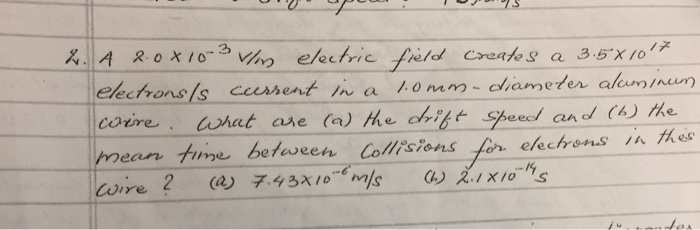 2. A 2.0 x 10⁻³ V/m electric field creates a 3.5 x 10¹⁷
electrons/s current in a 1.0 mm - diameter aluminum
wire. What are (a) the drift speed and (b) the
mean time between Collisions for electrons in this
wire ? (a) 7.43x10⁻⁶ m/s (b) 2.1x10⁻¹⁴ s